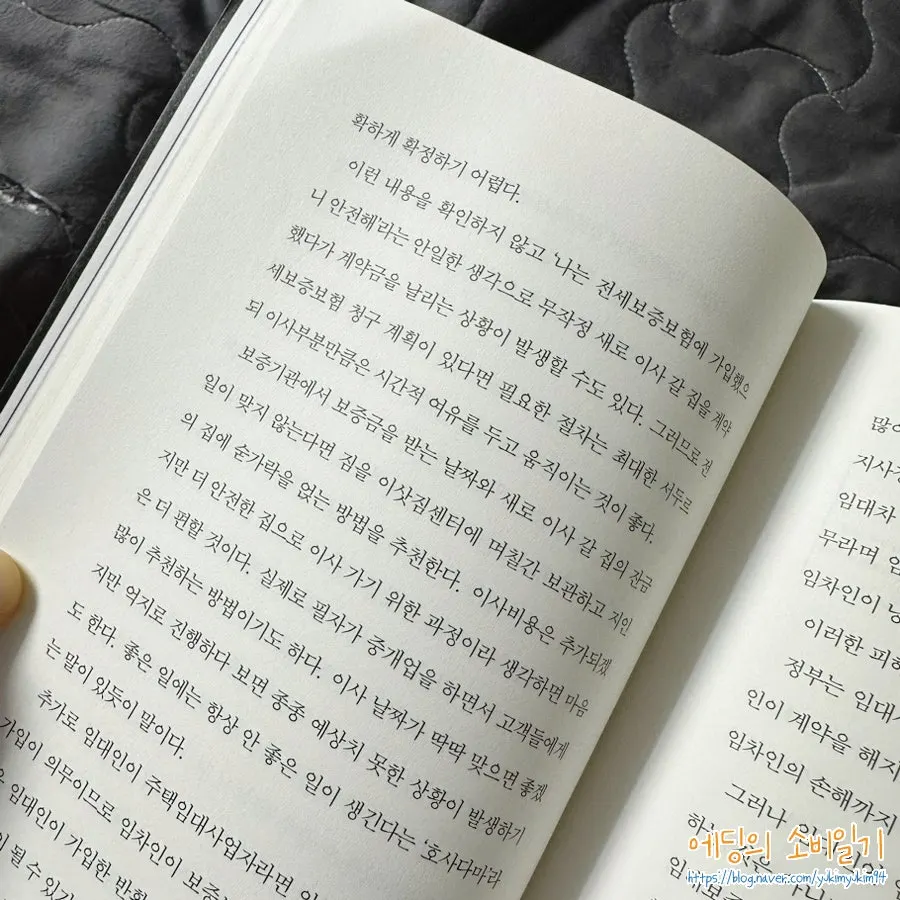 확하게 확정하기 어렵다.
이런 내용을 확인하지 않고 '나는 전세보증보험에 가입했으
니 안전해'라는 안일한 생각으로 무작정 새로 이사 갈 집을 계약
했다가 계약금을 날리는 상황이 발생할 수도 있다. 그러므로 전
세보증보험 청구 계획이 있다면 필요한 절차는 최대한 서두르
되 이사부분만큼은 시간적 여유를 두고 움직이는 것이 좋다.
보증기관에서 보증금을 받는 날짜와 새로 이사 갈 집의 잔금
일이 맞지 않는다면 짐을 이삿짐센터에 며칠간 보관하고 지인
의 집에 숟가락을 얹는 방법을 추천한다. 이사비용은 추가되겠
지만 더 안전한 집으로 이사 가기 위한 과정이라 생각하면 마음
은 더 편할 것이다. 실제로 필자가 중개업을 하면서 고객들에게
많이 추천하는 방법이기도 하다. 이사 날짜가 딱딱 맞으면 좋겠
지만 억지로 진행하다 보면 종종 예상치 못한 상황이 발생하기
도 한다. 좋은 일에는 항상 안 좋은 일이 생긴다는 '호사다마'라
는 말이 있듯이 말이다.
추가로 임대인이 주택임대사업자라면
가입이 의무이므로 임차인이
임대인이 가입한
될 수
지사
임대차
무라며
임차인이
이러한 피
정부는
인이 계약을 해지
임차인의 손해까지
그러나
에딩의 소비일기
https://blog.naver.com/yukimyukim94